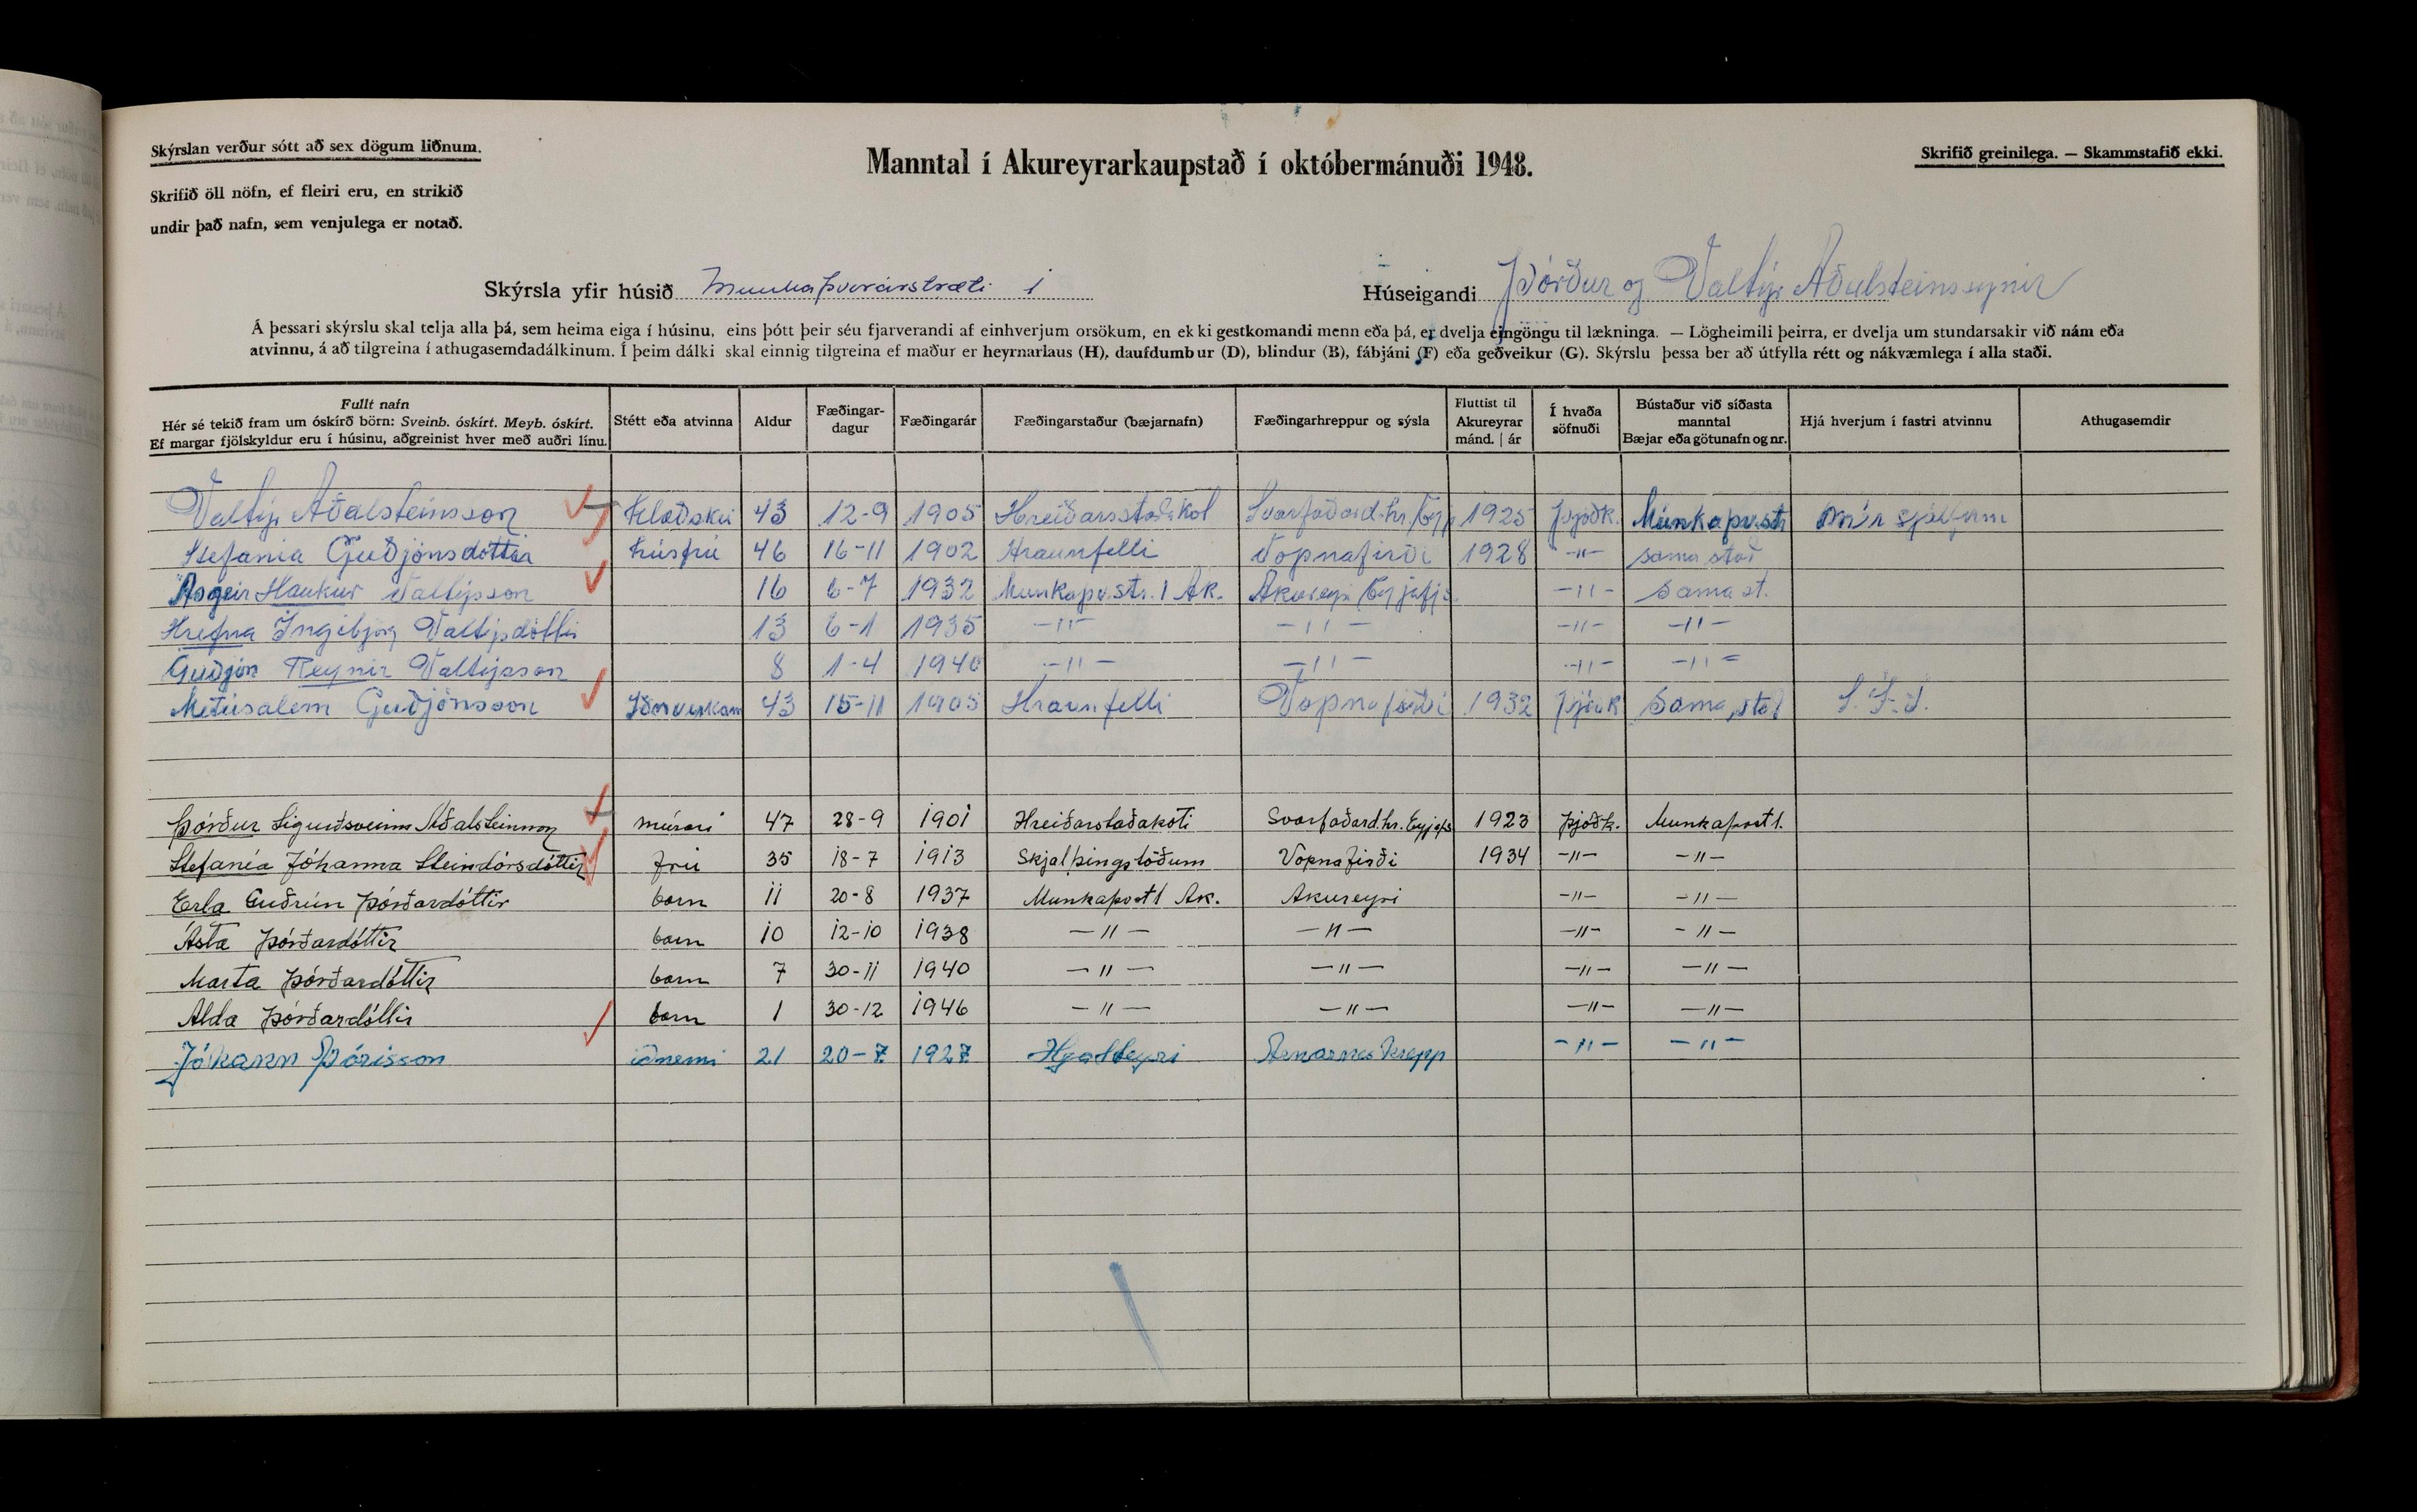 Skýrslan verður sótt að sex dögum liðnum.
Skrifið öll nöfn, ef fleiri eru, en strikið
undir það nafn, sem venjulega er notað.
Manntal í Akureyrarkaupstað í októbermánuði 1948.
Skrifið greinilega. — Skammstafið ekki.
Skýrsla yfir húsið Munkaþverárstræti 1
Húseigandi Þórður og Valtýr Aðalsteinssynir
Á þessari skýrslu skal telja alla þá, sem heima eiga í húsinu, eins þótt þeir séu fjarverandi af einhverjum orsökum, en ekki gestkomandi menn eða þá, er dvelja eingöngu til lækninga. — Lögheimili þeirra, er dvelja um stundarsakir við nám eða
atvinnu, á að tilgreina í athugasemdadálkinum. Í þeim dálki skal einnig tilgreina ef maður er heyrnarlaus (H), daufdumbur (D), blindur (B), fábjáni (F) eða geðveikur (G). Skýrslu þessa ber að útfylla rétt og nákvæmlega í alla staði.
Fullt nafn
Hér sé tekið fram um óskírð börn: Sveinb. óskírt. Meyb. óskírt.
Ef margar fjölskyldur eru í húsinu, aðgreinist hver með auðri línu.
Stétt eða atvinna
Aldur
Fæðingar-
dagur
Fæðingarár
Fæðingarstaður (bæjarnafn)
Fæðingarhreppur og sýsla
Fluttist til
Akureyrar
mánd. | ár
Í hvaða
söfnuði
Bústaður við síðasta
manntal
Bæjar eða götunafn og nr.
Hjá hverjum í fastri atvinnu
Athugasemdir
Valtýr Aðalsteinsson Klæðsk 43 12-9 1905 Hreiðarsstaðakot Svarfaðard.hr. 1925 Þjóðk. Munkaþv.str mér sjálfum
Stefania Guðjónsdóttir húsfrú 46 16-11 1902 Hraunfelli Vopnafirði 1928 -"- sama stað
Asgeir Haukur Valtýsson 16 6-7 1932 Munkaþv.str. 1 Ak. Akureyri -"- Sama st.
Hrefna Ingibjörg Valtýsdóttir 13 6-1 1935 -"- -"- -"- -"-
Guðjón Reynir Valtýsson 8 1-4 1940 -"- -"- -"- -"-
Metúsalem Guðjónsson 43 15-11 1905 Hraunfelli Vopnafirði 1932 Þjóðk Sama stað S.Í.S.
Þórður Sigurðsveinn Aðalsteinsson múrari 47 28-9 1901 Hreiðarstaðakoti Svarfaðard.hr. Eyjafs 1923 Þjóðk. Munkaþvst 1.
Stefanía Jóhanna Steindórsdóttir frú 35 18-7 1913 Skjalþingstöðum Vopnafirði 1934 -"- -"-
Erla Guðrún Þórðardóttir barn 11 20-8 1937 Munkaþvst 1 Ak. Akureyri -"- -"-
Ásta Þórðardóttir barn 10 12-10 1938 -"- -"- -"- -"-
Marta Þórðardóttir barn 7 30-11 1940 -"- -"- -"- -"-
Alda Þórðardóttir barn 1 30-12 1946 -"- -"- -"- -"-
Jóhann Þórisson iðnemi 21 20-7 1927 Hjalteyri Arnarneshrepp -"- -"-